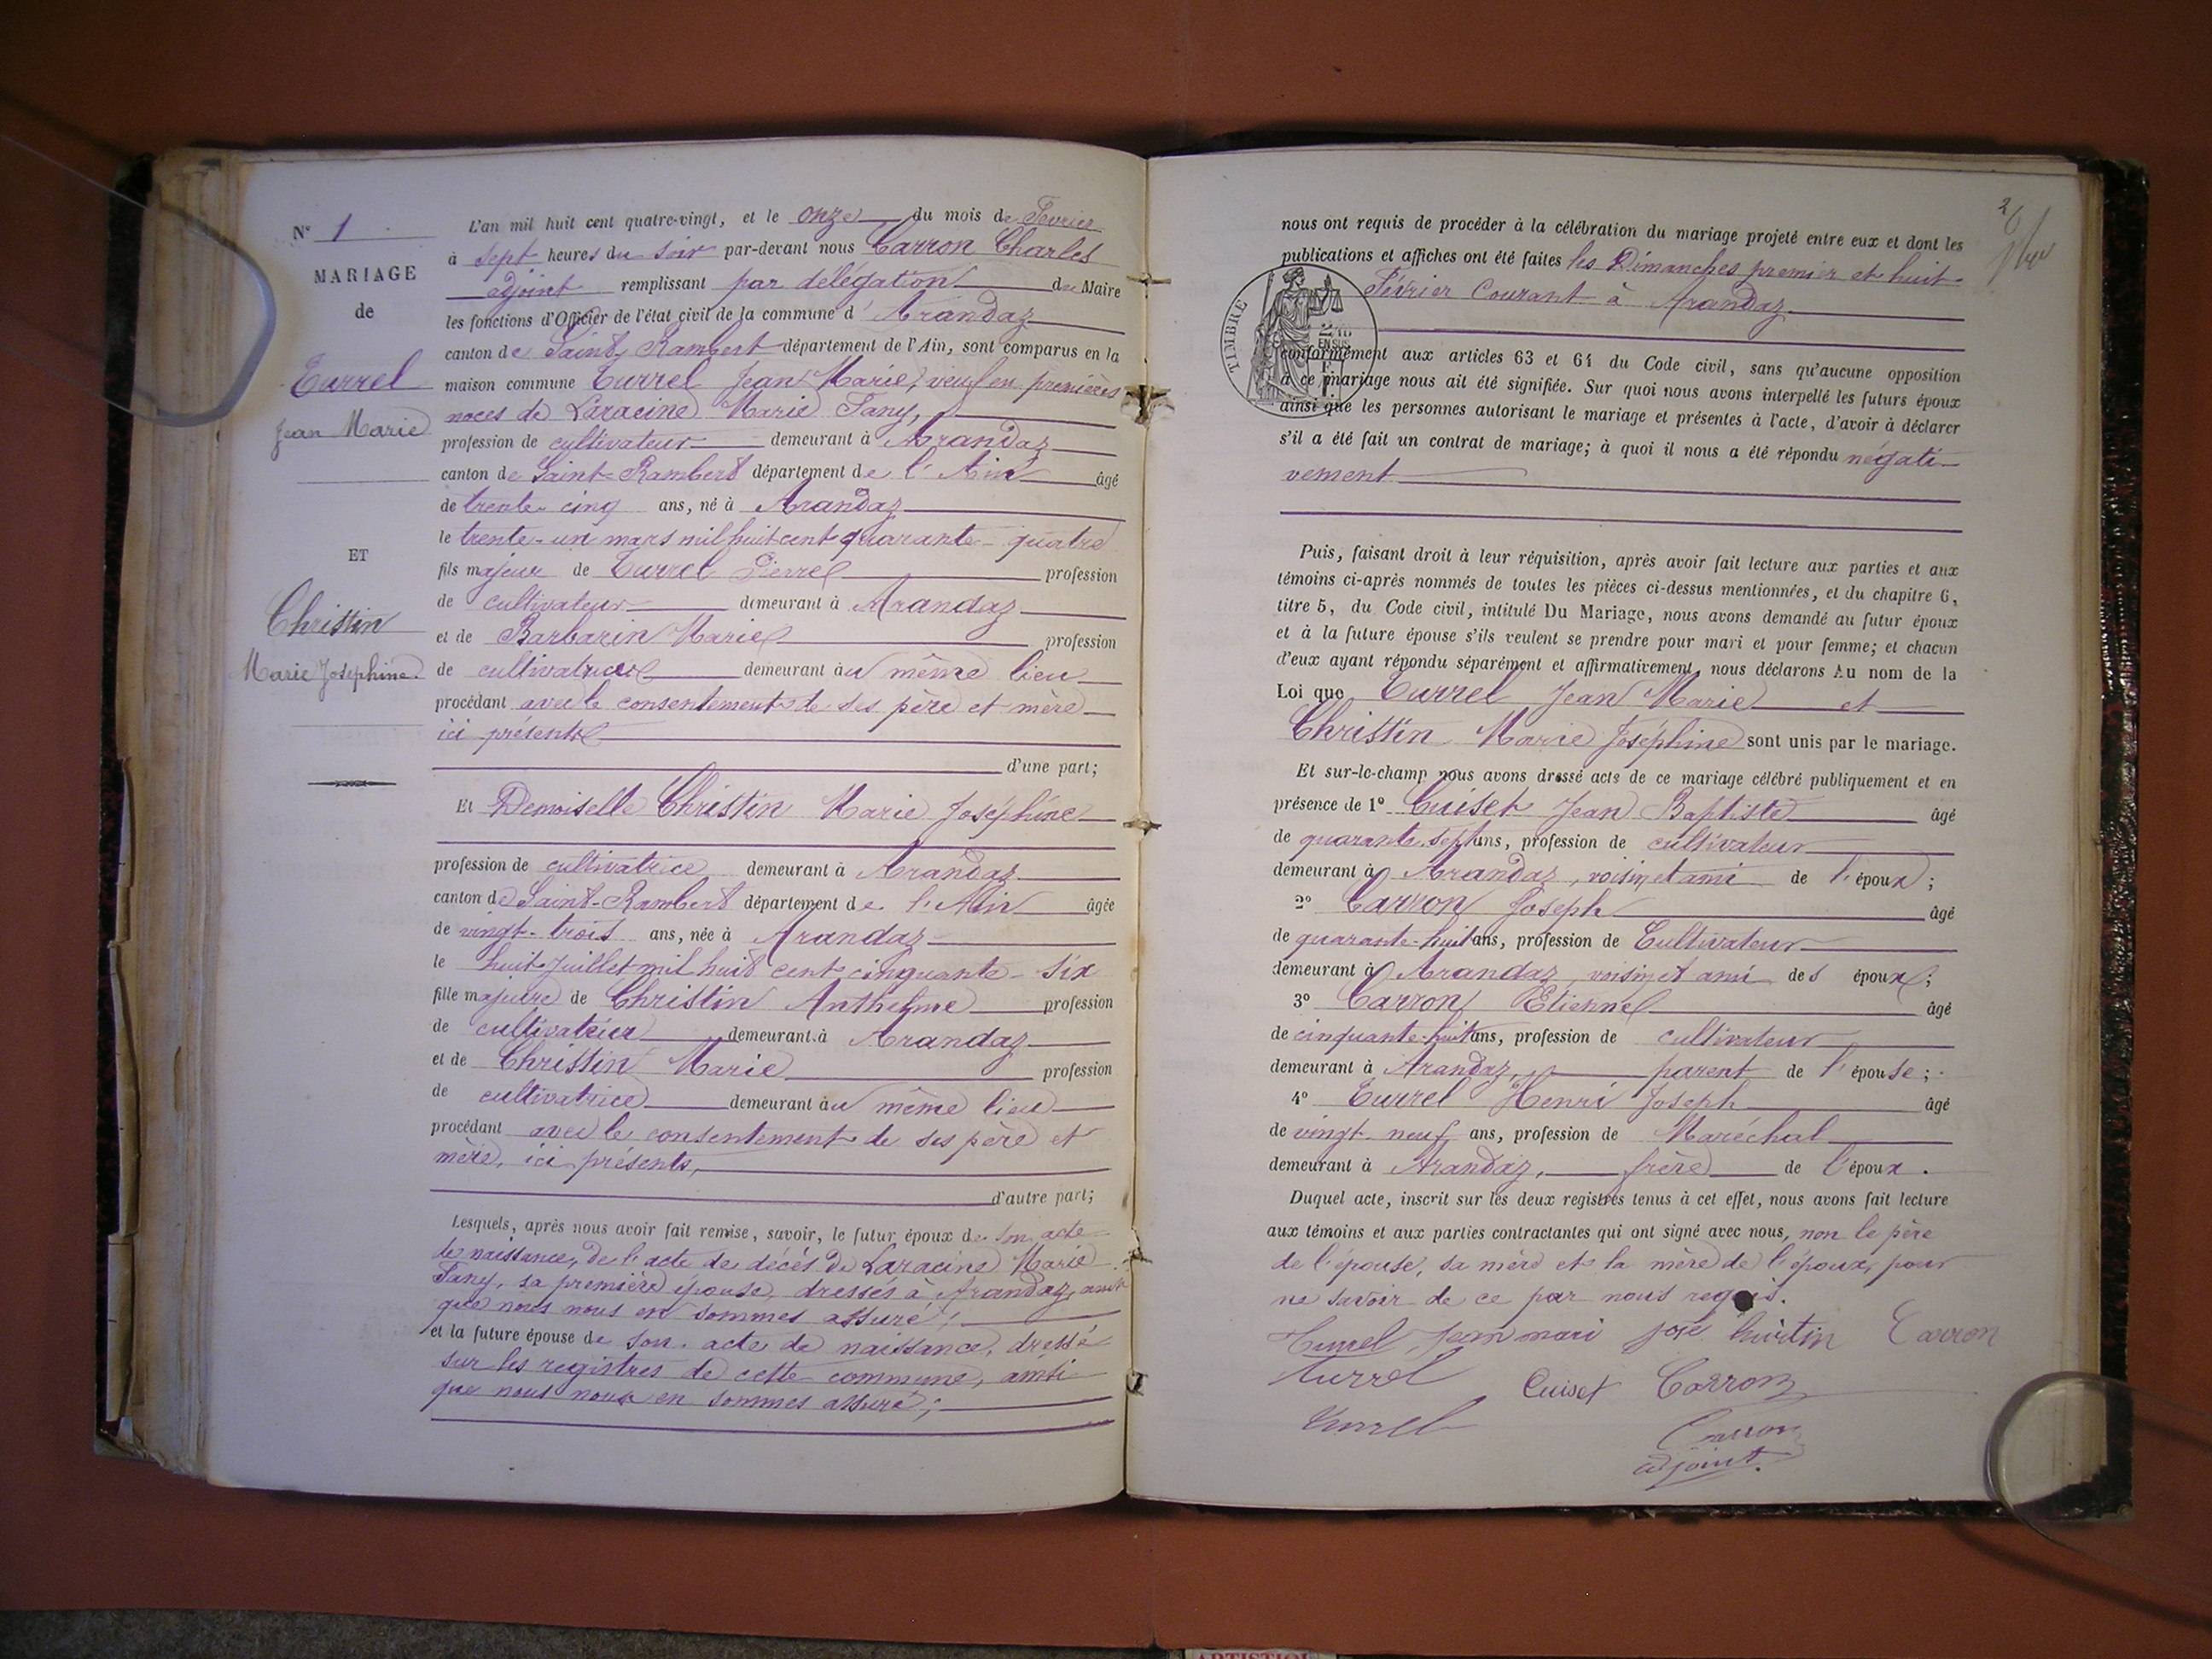 N° 1
MARIAGE
de
Turrel
Jean Marie
ET
Christin
Marie Joséphine.
L'an mil huit cent quatre-vingt, et le onze du mois de Février
à sept heures du soir par-devant nous Carron Charles
adjoint remplissant par délégation du Maire
les fonctions d'Officier de l'état civil de la commune d' Arandaz
canton de Saint Rambert département de l'Ain, sont comparus en la
maison commune Turrel Jean Marie, veuf en premières
noces de Laracine Marie Fany,
profession de cultivateur demeurant à Arandaz
canton de Saint-Rambert département de l'Ain âgé
de trente-cinq ans, né à Arandaz
le trente-un mars mil huit cent quarante-quatre
fils majeur de Turrel Pierre profession
de cultivateur demeurant à Arandaz
et de Barbarin Marie profession
de cultivatrice demeurant au même lieu
procédant avec le consentement de ses père et mère
ici présents
d'une part;
Et Demoiselle Christin Marie Joséphine
profession de cultivatrice demeurant à Arandaz
canton de Saint-Rambert département de l'Ain âgée
de vingt-trois ans, née à Arandaz
le huit Juillet mil huit cent cinquante-six
fille majeure de Christin Anthelme profession
de cultivateur demeurant à Arandaz
et de Christin Marie profession
de cultivatrice demeurant au même lieu
procédant avec le consentement de ses père et
mère, ici présents,
d'autre part;
Lesquels, après nous avoir fait remise, savoir, le futur époux de son acte
de naissance, de l'acte de décès de Laracine Marie
Fany, sa première épouse, dressés à Arandaz, ainsi
que nous nous en sommes assuré;
et la future épouse de son acte de naissance, dressé
sur les registres de cette commune, ainsi
que nous nous en sommes assuré;
nous ont requis de procéder à la célébration du mariage projeté entre eux et dont les
publications et affiches ont été faites les Dimanches premier et huit
Février Courant à Arandaz
TIMBRE
conformément aux articles 63 et 64 du Code civil, sans qu'aucune opposition
à ce mariage nous ait été signifiée. Sur quoi nous avons interpellé les futurs époux
ainsi que les personnes autorisant le mariage et présentes à l'acte, d'avoir à déclarer
s'il a été fait un contrat de mariage; à quoi il nous a été répondu négati-
vement
Puis, faisant droit à leur réquisition, après avoir fait lecture aux parties et aux
témoins ci-après nommés de toutes les pièces ci-dessus mentionnées, et du chapitre 6,
titre 5, du Code civil, intitulé Du Mariage, nous avons demandé au futur époux
et à la future épouse s'ils veulent se prendre pour mari et pour femme; et chacun
d'eux ayant répondu séparément et affirmativement, nous déclarons Au nom de la
Loi que Turrel Jean Marie et
Christin Marie Joséphine sont unis par le mariage.
Et sur-le-champ nous avons dressé acte de ce mariage célébré publiquement et en
présence de 1° Cuiset Jean Baptiste âgé
de quarante-sept ans, profession de cultivateur
demeurant à Arandaz, voisin et ami de l'époux;
2° Carron Joseph âgé
de quarante-huit ans, profession de Cultivateur
demeurant à Arandaz, voisin et ami des époux;
3° Carron Etienne âgé
de cinquante-huit ans, profession de cultivateur
demeurant à Arandaz, parent de l'épouse;
4° Turrel Henri Joseph âgé
de vingt-neuf ans, profession de Maréchal
demeurant à Arandaz, frère de l'époux.
Duquel acte, inscrit sur les deux registres tenus à cet effet, nous avons fait lecture
aux témoins et aux parties contractantes qui ont signé avec nous, non le père
de l'épouse, sa mère et la mère de l'époux, pour
ne savoir de ce par nous requis.
Turrel Jean mari Carron
Turrel Cuiset Carron
Turrel Carron
adjoint.